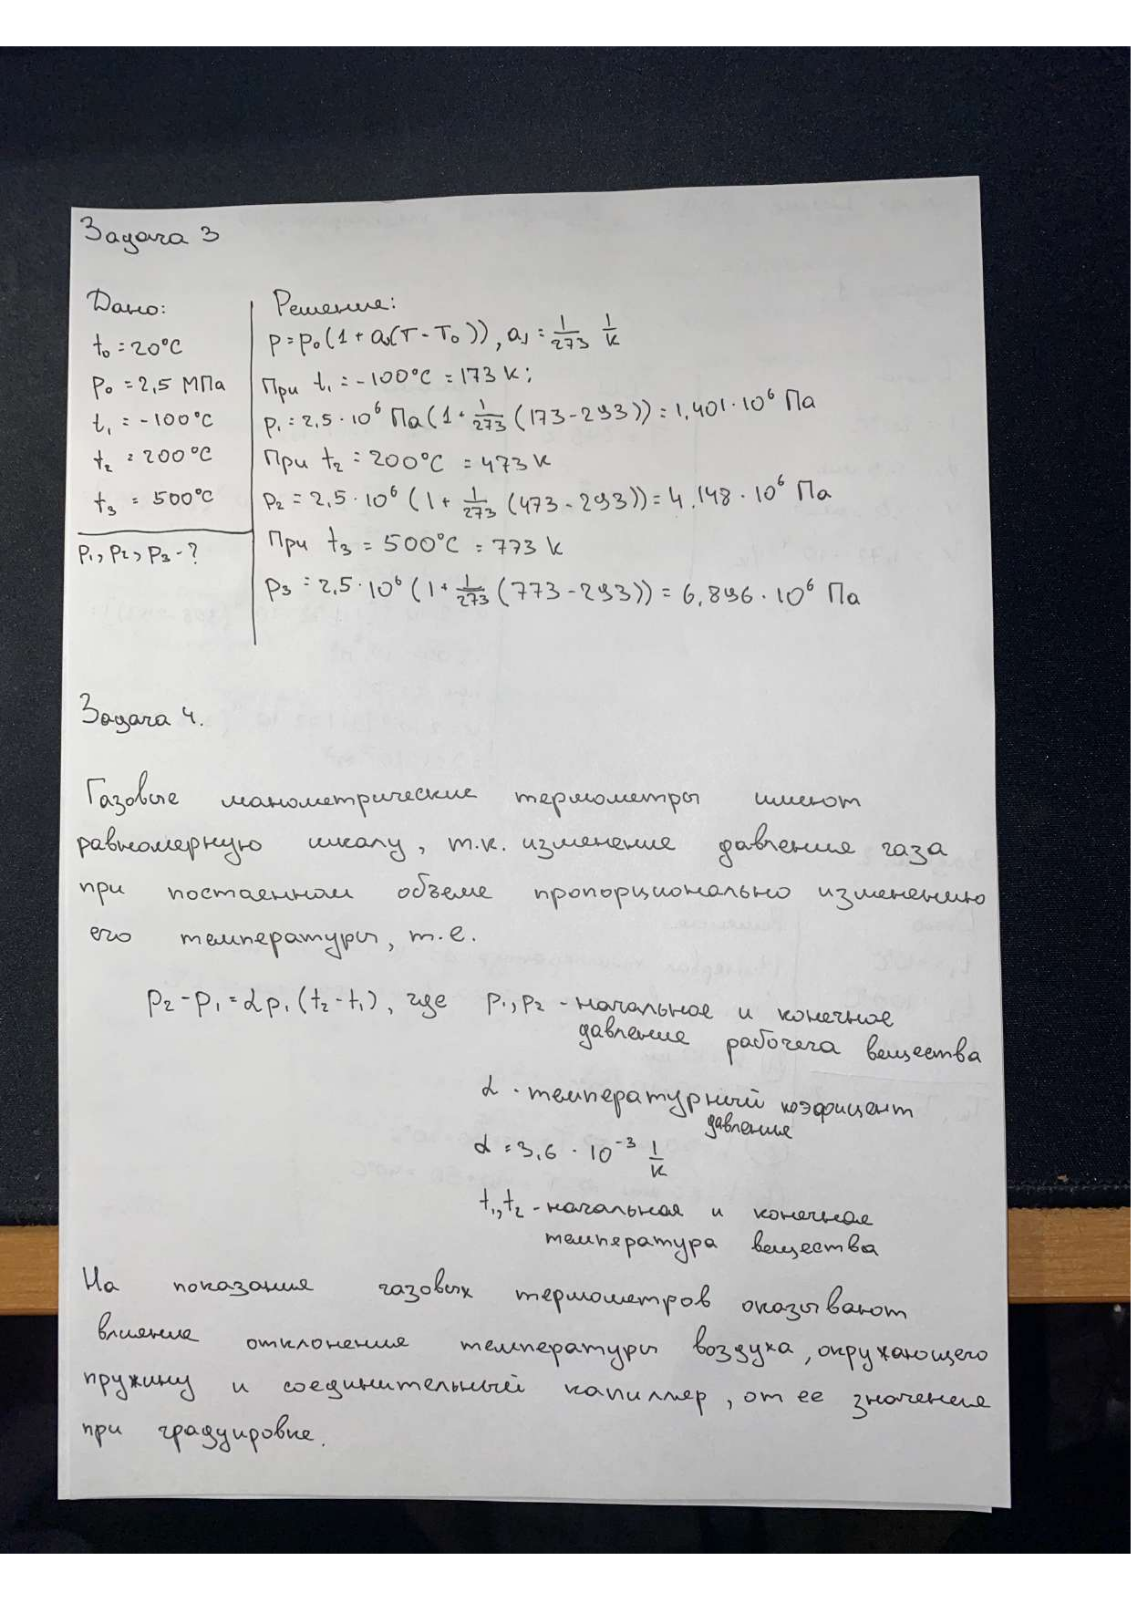 Задача 3
Дано:
t₀ = 20°C
P₀ = 2,5 МПа
t₁ = -100°C
t₂ = 200°C
t₃ = 500°C
P₁, P₂, P₃ - ?
Решение:
P = P₀(1 + a₁(T - T₀)), a₁ = 1/273 1/K
При t₁ = -100°C = 173 K;
P₁ = 2,5 · 10⁶ Па(1 + 1/273 (173 - 293)) = 1,401 · 10⁶ Па
При t₂ = 200°C = 473 K
P₂ = 2,5 · 10⁶ (1 + 1/273 (473 - 293)) = 4,148 · 10⁶ Па
При t₃ = 500°C = 773 K
P₃ = 2,5 · 10⁶ (1 + 1/273 (773 - 293)) = 6,896 · 10⁶ Па
Задача 4.
Газовые манометрические термометры имеют
равномерную шкалу, т.к. изменение давления газа
при постаенном объеме пропорционально изменению
его температуры, т.е.
P₂ - P₁ = α P₁ (t₂ - t₁), где P₁, P₂ - начальное и конечное
давление рабочега вещества
α - температурный коэфицент
давления
α = 3,6 · 10⁻³ 1/K
t₁, t₂ - начальная и конечная
температура вещества
На показания газовых термометров оказывают
влияние отклонения температуры воздуха, окружающего
пружину и соединительный капилляр, от ее значения
при градуировке.